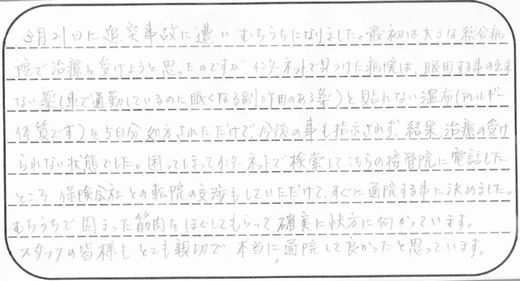 8月21日に追突事故に遭い、むちうちになりました。最初は大きな総合病
院で治療を受けようと思ったのですが、インターネットで見つけた病院は、服用する事の出来
ない薬(車で通勤しているのに眠くなる副作用のある薬)と貼れない湿布(アレルギー
体質です)を5日分処方されただけで、今後の事も指示されず、結果、治療の受け
られない状態でした。困ってしまってインターネットで検索して、こちらの接骨院に電話した
ところ、保険会社との転院の交渉もしていただけて、すぐに通院する事に決めました。
むちうちで固まった筋肉をほぐしてもらって、確実に快方に向かっています。
スタッフの皆様もとても親切で、本当に通院して良かったと思っています。